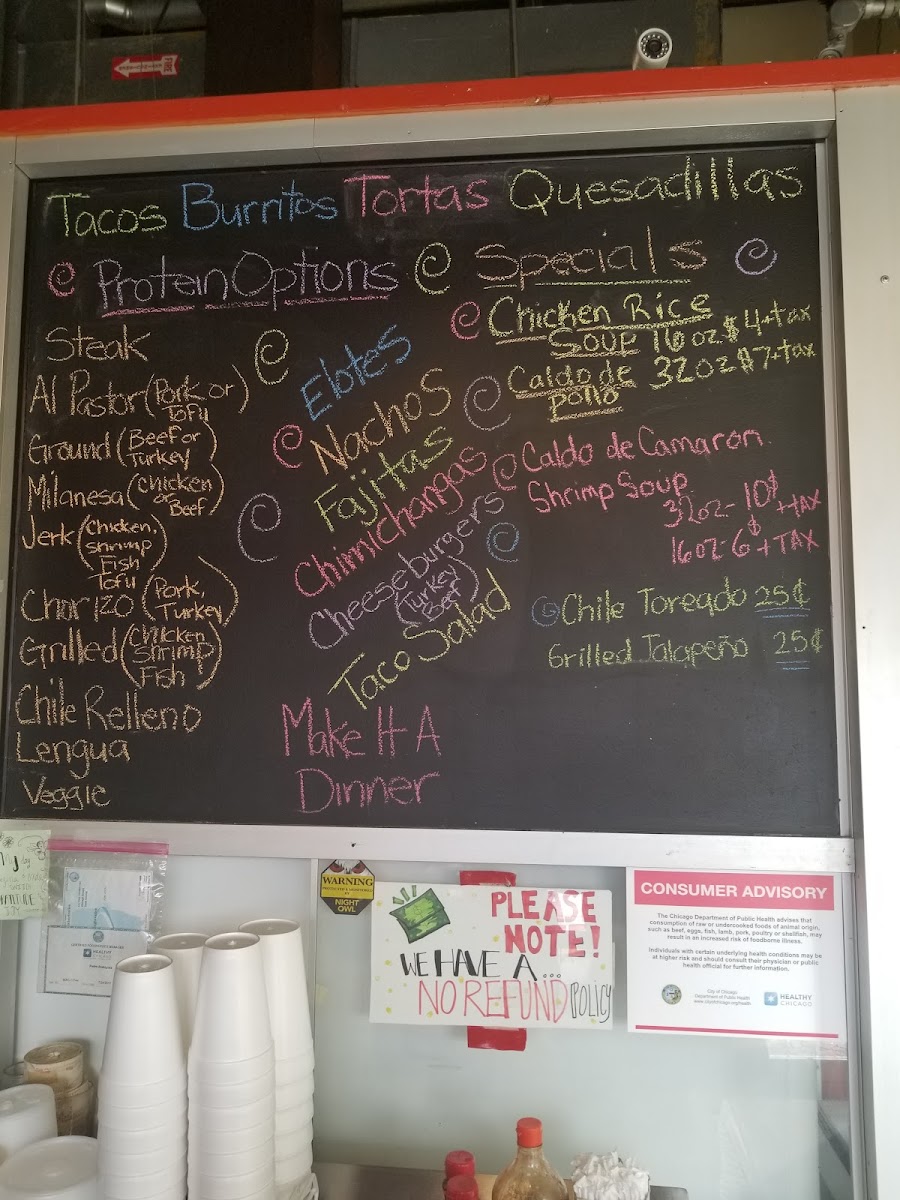 FIRE
Tacos Burritos Tortas Quesadillas
Protein Options
Steak
Al Pastor (Pork or
Tofu)
Ground (Beef or
Turkey)
Milanesa (chicken
or
Beef)
Jerk (Chicken,
shrimp
Fish
Tofu)
Chorizo (Pork,
Turkey)
Grilled (Chicken
Shrimp
Fish)
Chile Relleno
Lengua
Veggie
Elotes
Nachos
Fajitas
Chimichangas
Cheeseburgers
(Turkey
Beef)
Taco Salad
Make It A
Dinner
Specials
Chicken Rice
Soup 16oz $4+tax
Caldo de 32oz $7+tax
pollo
Caldo de Camaron
Shrimp Soup
32oz- 10$ +TAX
16oz- 6$ +TAX
Chile Toreado 25¢
Grilled Jalapeño 25¢
WARNING
NIGHT
OWL
PLEASE
NOTE!
WE HAVE A...
NO REFUND POLICY
CONSUMER ADVISORY
The Chicago Department of Public Health advises that
consumption of raw or undercooked foods of animal origin,
such as beef, eggs, fish, lamb, pork, poultry or shellfish, may
result in an increased risk of foodborne illness.
Individuals with certain underlying health conditions may be
at higher risk and should consult their physician or public
health official for further information.
City of Chicago
Department of Public Health
HEALTHY
CHICAGO